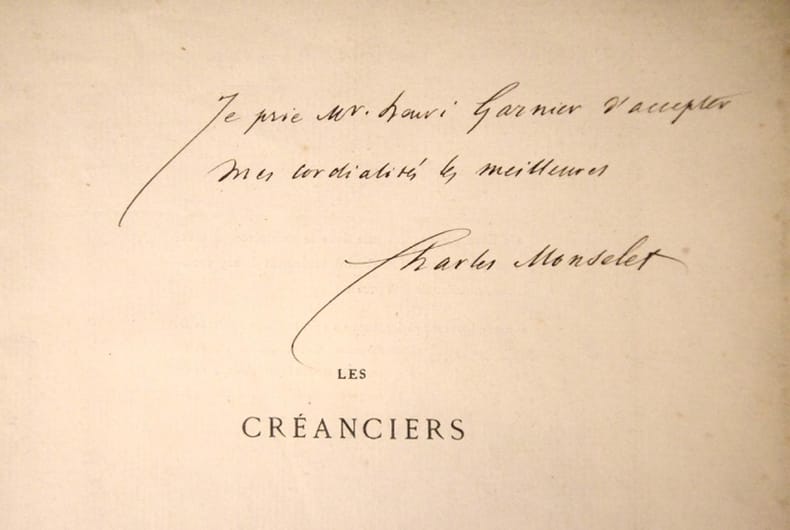 Je prie Mr. henri Garnier d'accepter
mes cordialités les meilleures
Charles Monselet
LES
CRÉANCIERS